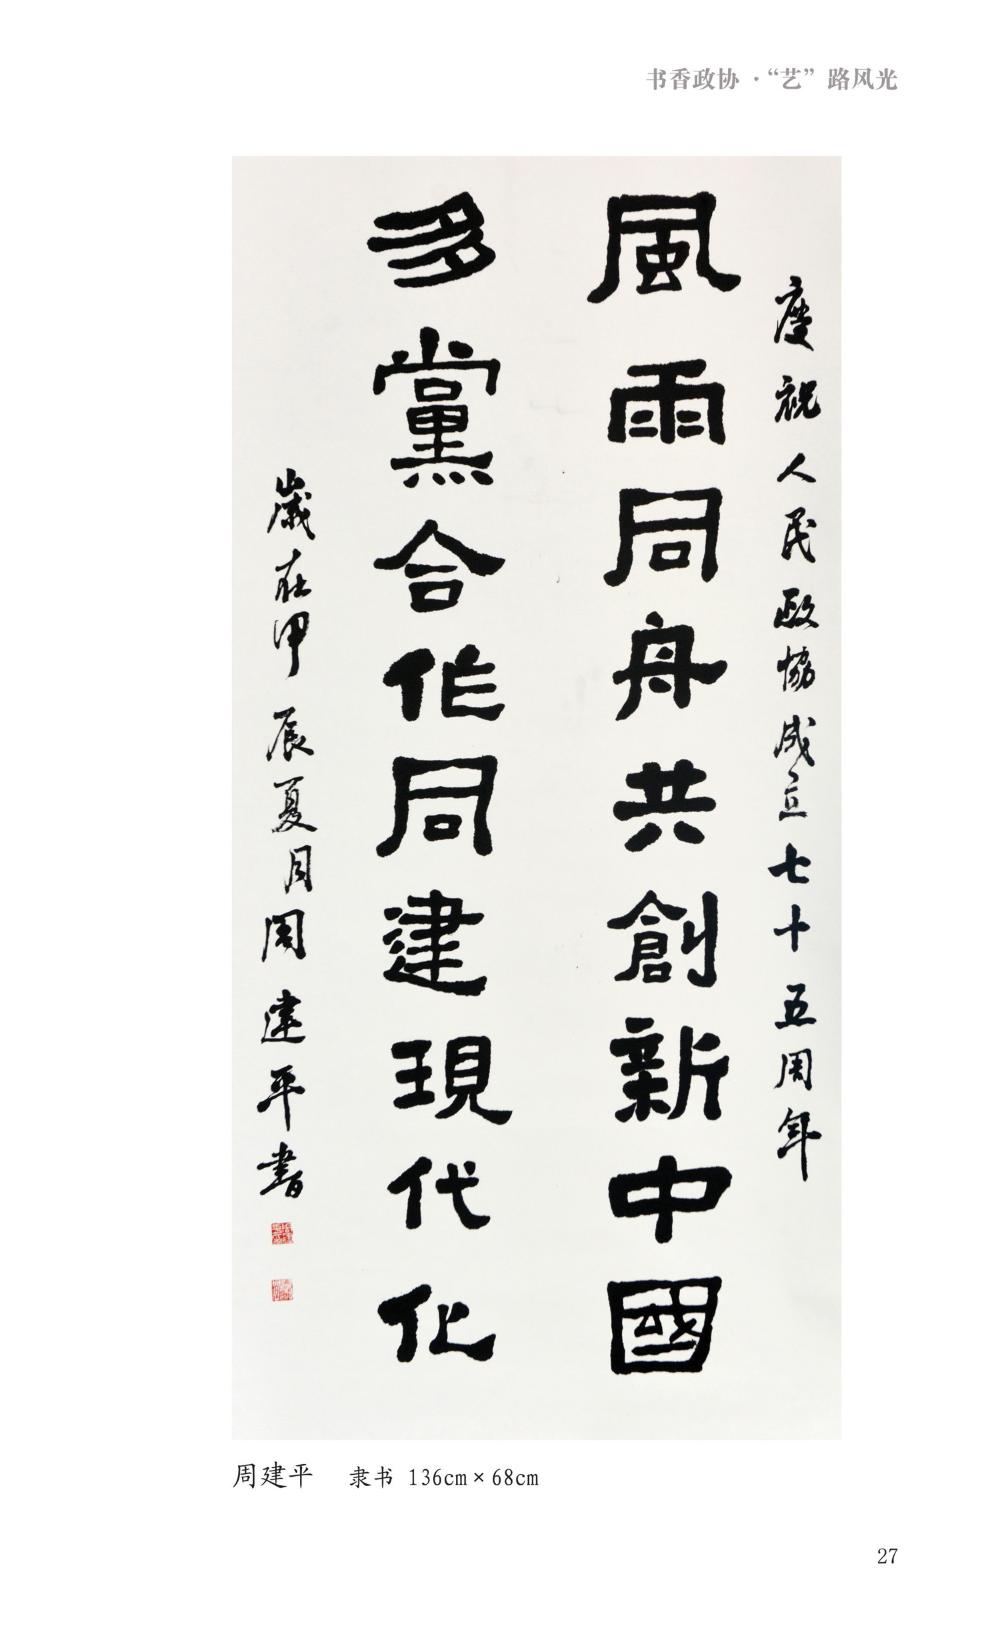 书香政协·“艺”路风光
慶祝人民政協成立七十五周年
風雨同舟共創新中國
多黨合作同建現代化
歲在甲辰夏月周建平書
周建平 隶书 136cm×68cm
27